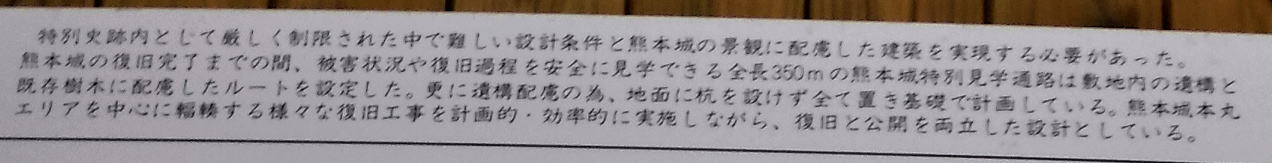 特別史跡内として厳しく制限された中で難しい設計条件と熊本城の景観に配慮した建築を実現する必要があった。
熊本城の復旧完了までの間、被害状況や復旧過程を安全に見学できる全長350mの熊本城特別見学通路は敷地内の遺構と
既存樹木に配慮したルートを設定した。更に遺構配慮の為、地面に杭を設けず全て置き基礎で計画している。熊本城本丸
エリアを中心に輻輳する様々な復旧工事を計画的・効率的に実施しながら、復旧と公開を両立した設計としている。